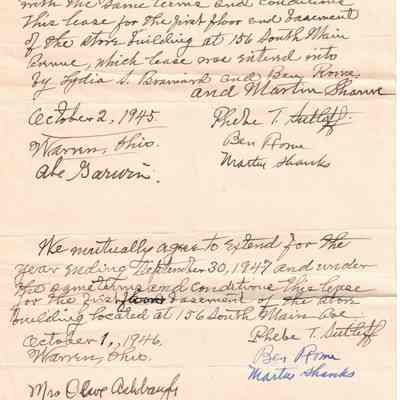 with the same terms and conditions
this lease for the first floor and basement
of the store building at 156 South Main
Avenue, which lease was entered into
by Lydia S. Brainard and Ben Rome
and Martin Shanks
October 2, 1945.
Warren, Ohio.
Abe Garwin.
Phebe T. Sutliff.
Ben Rome
Martin Shanks
We mutually agree to extend for the
year ending September 30, 1947 and under
the same terms and conditions this lease
for the first floor basement of the store
building located at 156 South Main Ave
October 1, 1946.
Warren, Ohio.
Mrs Olive Ashbaugh
Phebe T. Sutliff
Ben Rome
Martin Shanks